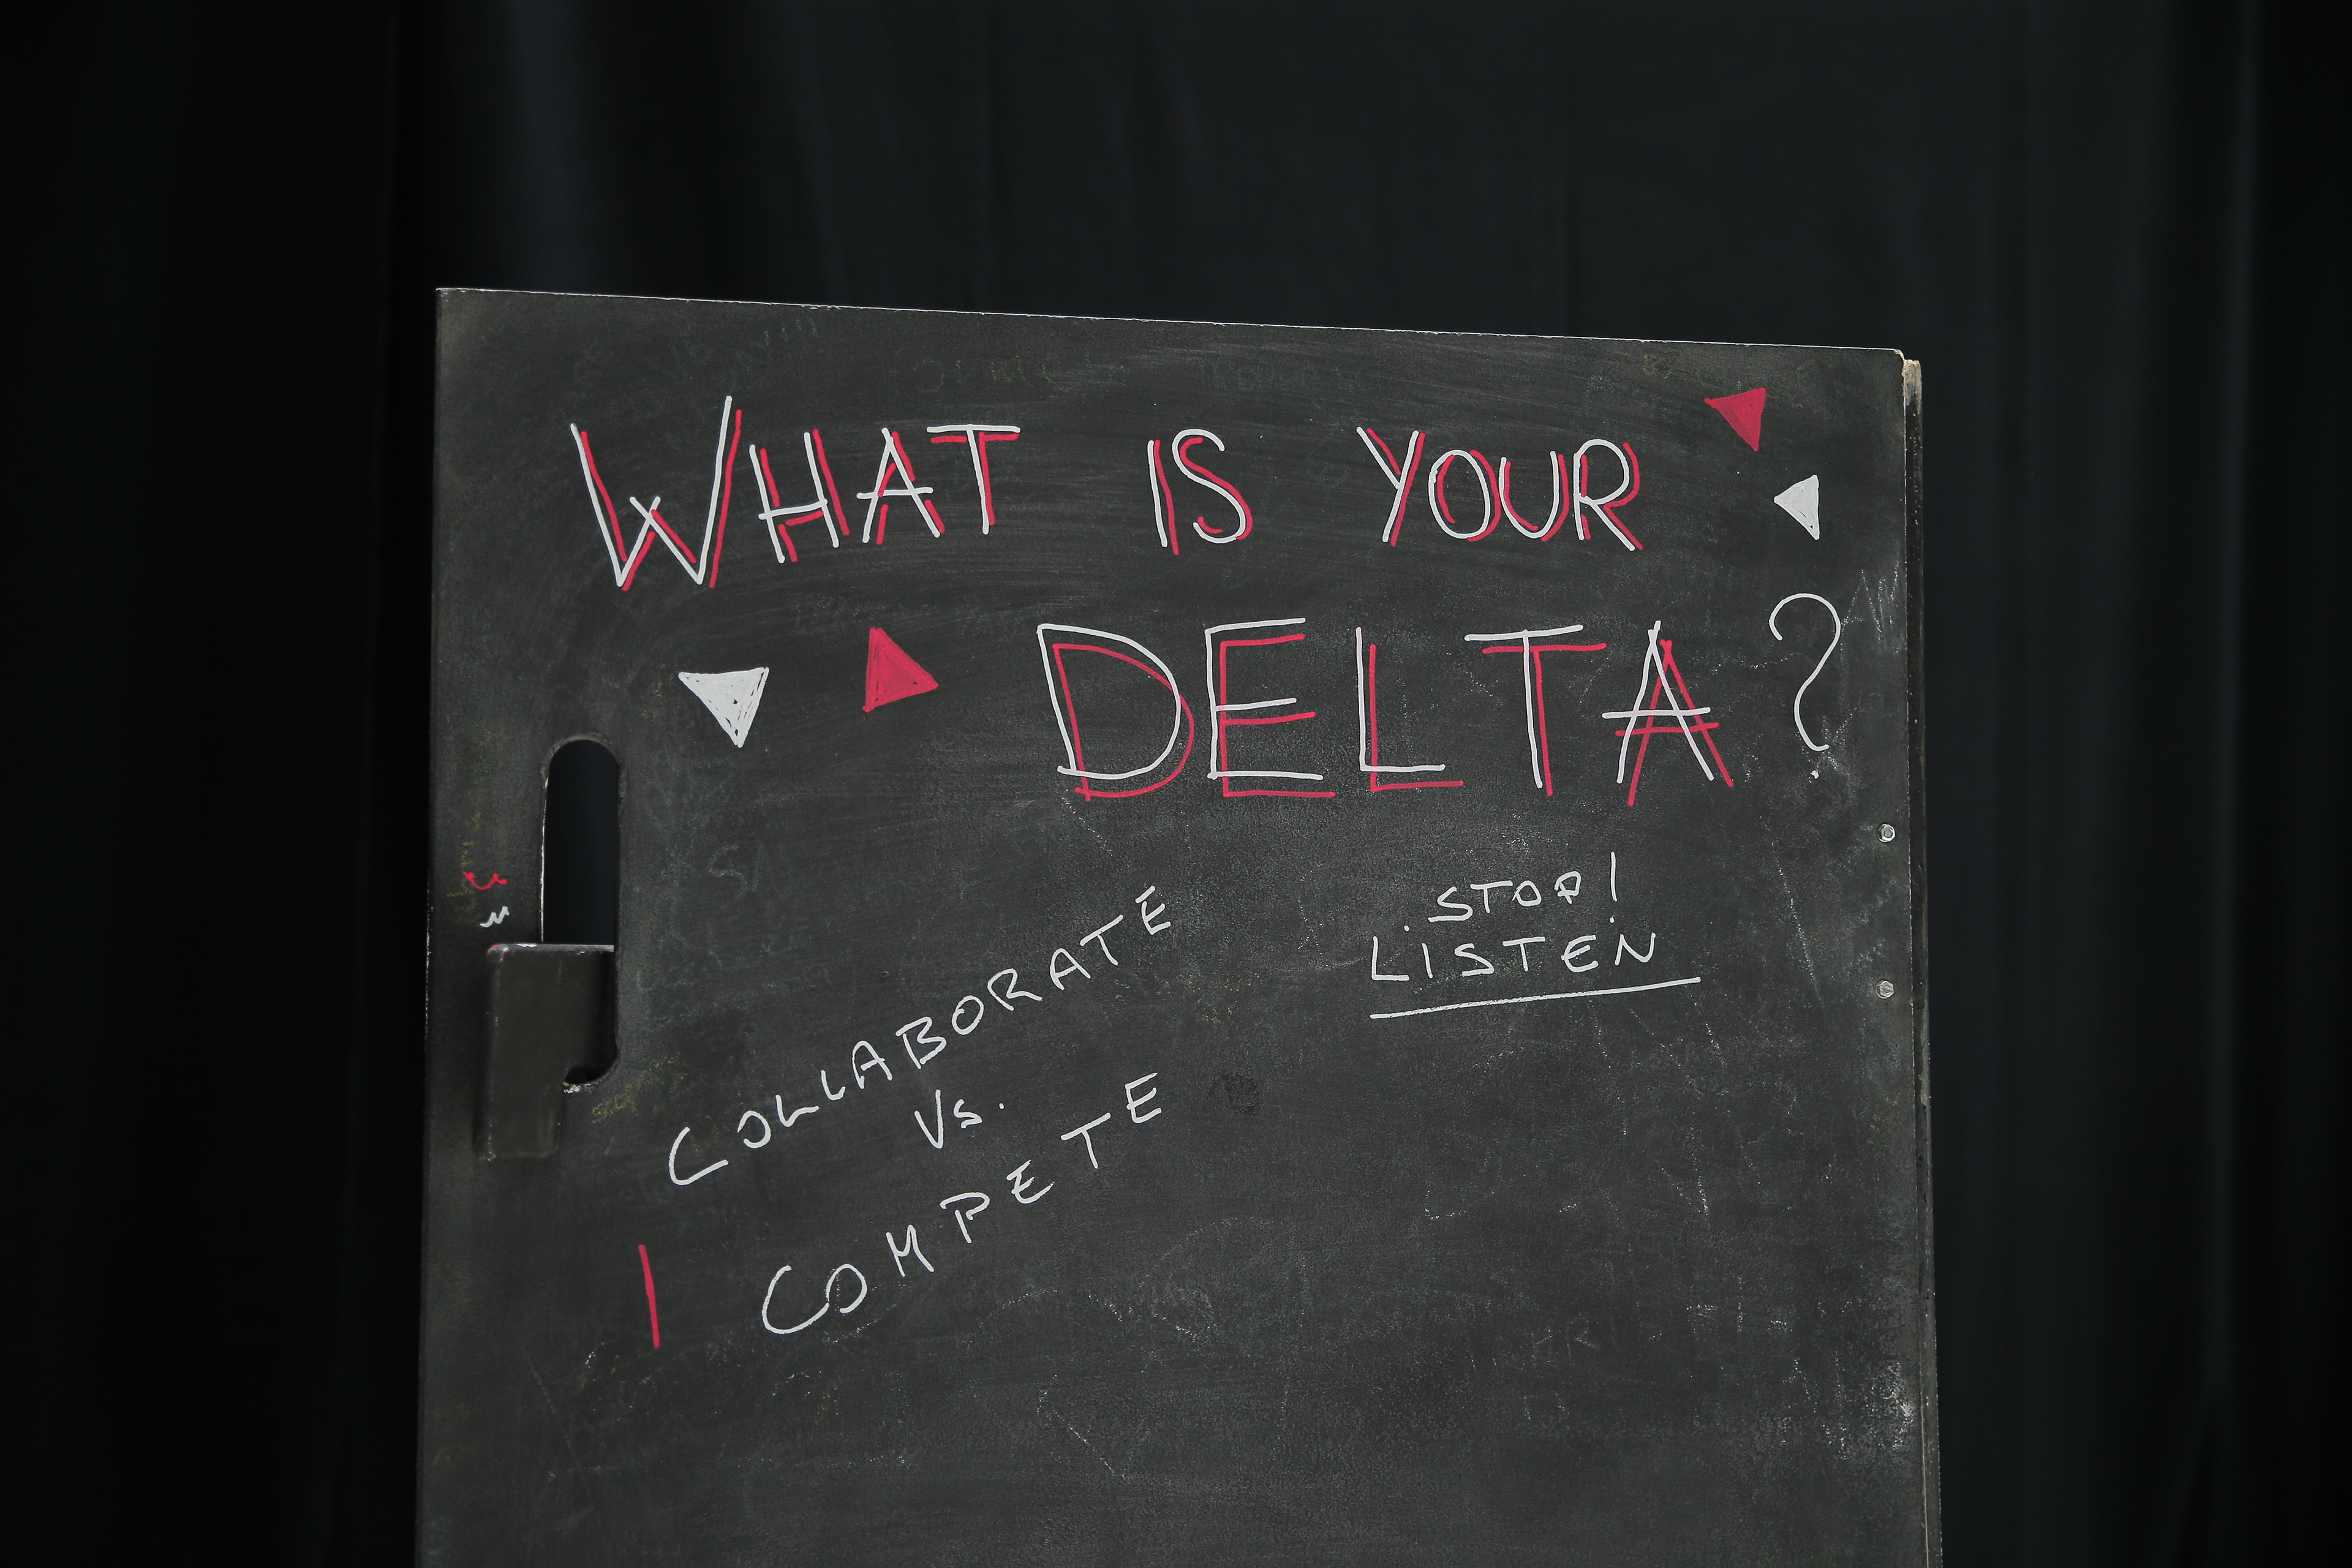 WHAT IS YOUR
DELTA?
COLLABORATE
Vs.
COMPETE
STOP!
LISTEN